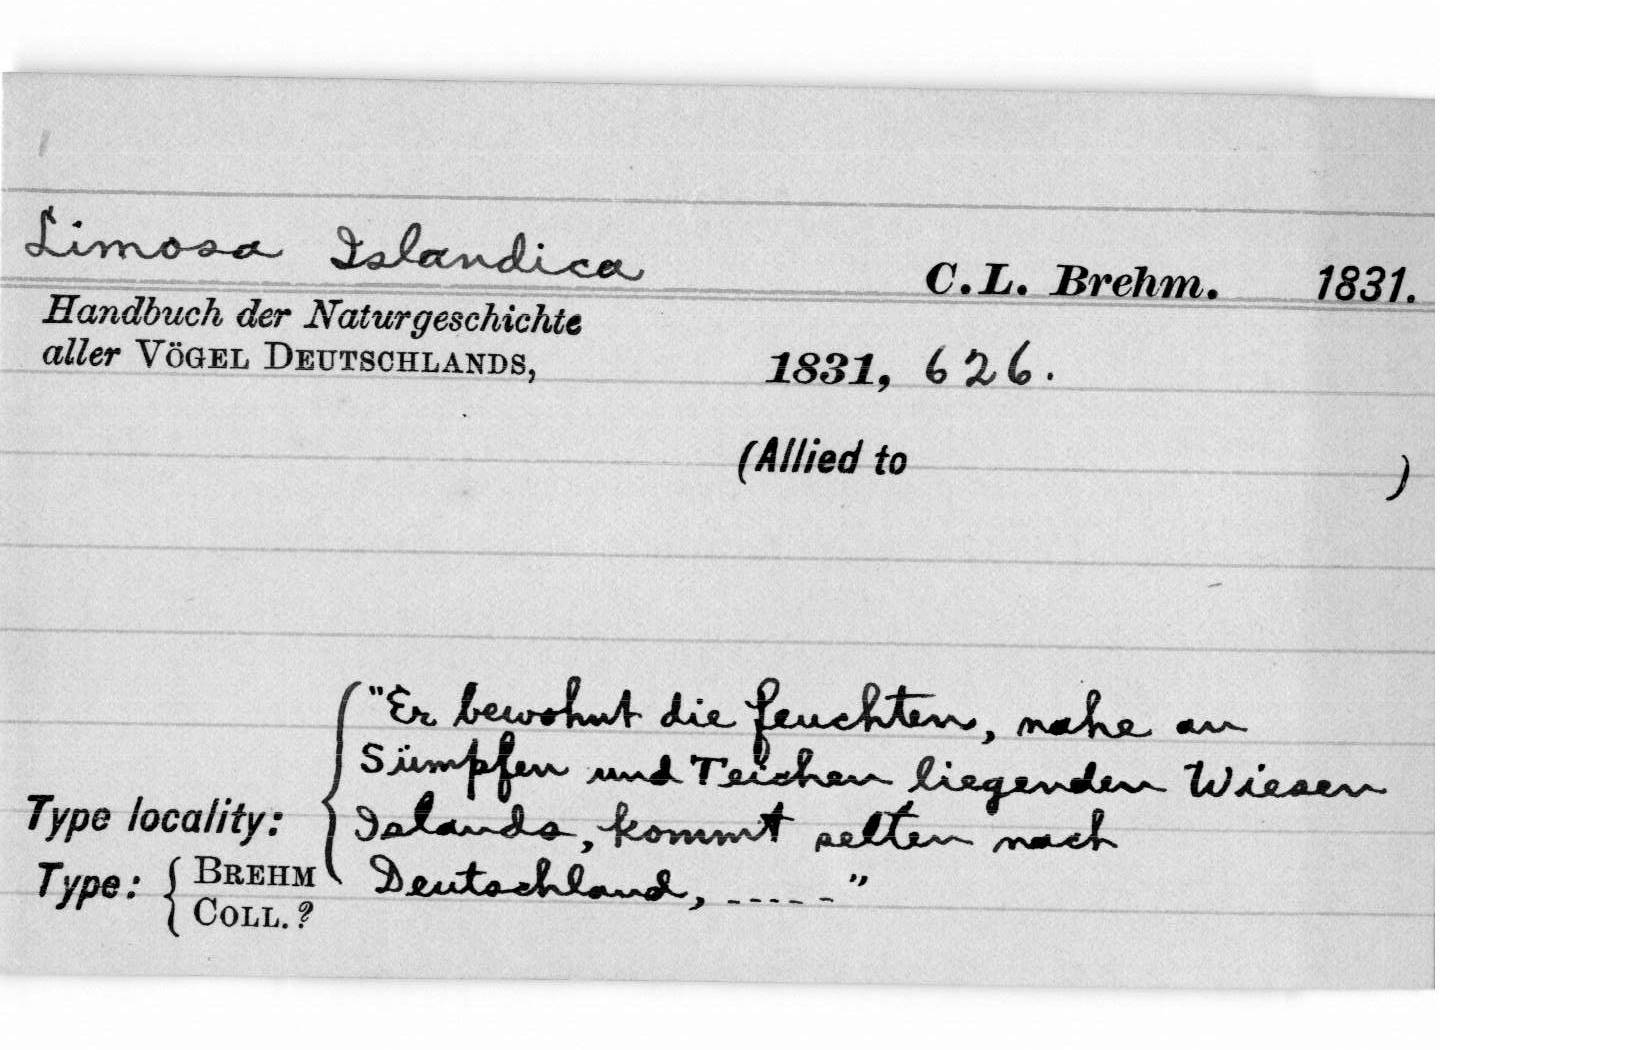 Limosa Islandica
C.L. Brehm. 1831.
Handbuch der Naturgeschichte
aller VÖGEL DEUTSCHLANDS, 1831, 626.
(Allied to )
"Er bewohnt die feuchten, nahe an
Sümpfen und Teichen liegenden Wiesen
Type locality: Islands, kommt selten nach
Type: { BREHM Deutschland, ----- "
COLL. ?